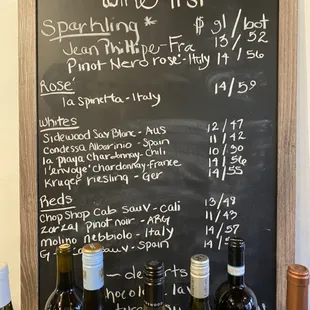 wine list
Sparkling * $ gl / bot
Jean Phillipe - Fra 13 / 52
Pinot Nero rosé - Italy 14 / 56
Rosé
la Spinetta - Italy 14 / 59
Whites
Sidewood Sav Blanc - Aus 12 / 47
Condessa Albarinio - Spain 11 / 42
la playa Chardonnay - Chili 10 / 30
l'envoyé chardonnay - france 14 / 56
Kruger riesling - Ger 14 / 55
Reds
Chop Shop Cab Sauv - Cali 13 / 48
Zorzal Pinot noir - ARG 11 / 43
molino nebbiolo - Italy 14 / 57
G sauv - Spain 14 /